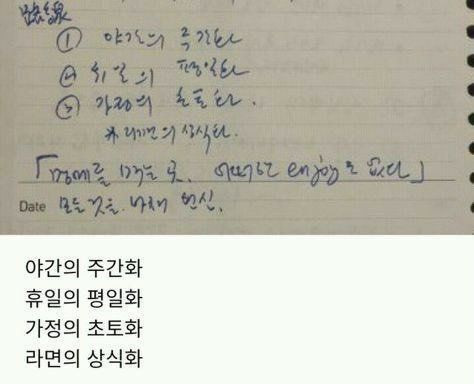 路線
① 야간의 주간화
② 휴일의 평일화
③ 가정의 초토화.
*라면의 상식화.
「명예를 먹는 곳. 어떠한 대항도 없다」
Date 모든것을 바쳐 헌신.
야간의 주간화
휴일의 평일화
가정의 초토화
라면의 상식화